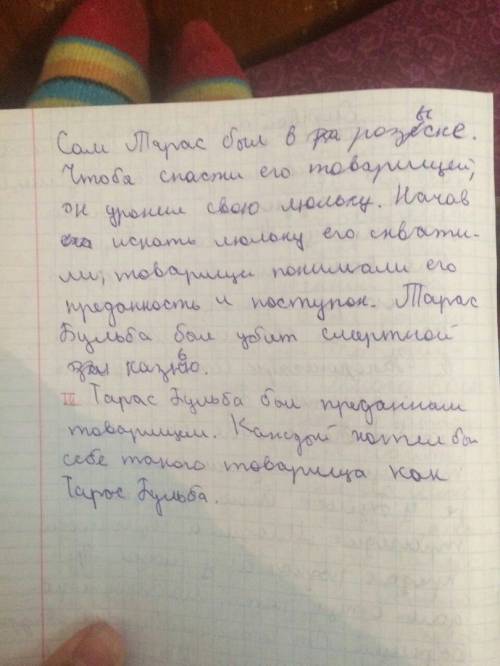 Сам Тарас был в розыске.
Чтобя спасти его товарищей,
он уронил свою люльку. Начав
искать люльку его схвати-
ли, товарищи понимали его
преданность и поступок. Тарас
Бульба был убит смертной
казнью.
IV Тарас Бульба был преданным
товарищем. Каждый хотел бы
себе такого товарища как
Тарас Бульба.